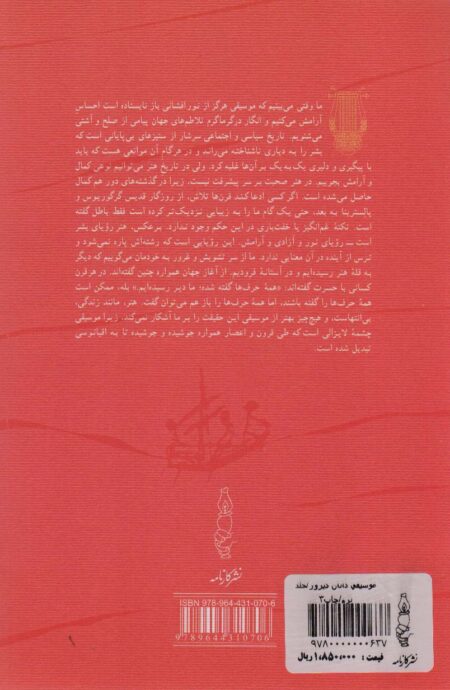 ما وقتی می‌بینیم که موسیقی هرگز از نورافشانی باز نایستاده است احساس
آرامش می‌کنیم و انگار درگرماگرم تلاطم‌های جهان پیامی از صلح و آشتی
می‌شنویم. تاریخ سیاسی و اجتماعی سرشار از ستیزهای بی‌پایانی است که
بشر را به دیاری ناشناخته می‌راند و در هرگام آن موانعی هست که باید
با پیگیری و دلیری یک به یک بر آن‌ها غلبه کرد. ولی در تاریخ هنر می‌توانیم نوعی کمال
و آرامش بجوییم. در هنر صحبت بر سر پیشرفت نیست، زیرا در گذشته‌های دور هم کمال
حاصل می‌شده است. اگر کسی ادعا کند قرن‌ها تلاش، از روزگار قدیس گرگوریوس و
پالسترینا به بعد، حتی یک گام ما را به زیبایی نزدیک‌تر کرده است فقط باطل گفته
است. نکتهٔ غم‌انگیز یا خفت‌باری در این حکم وجود ندارد. برعکس، هنر رؤیای بشر
است ــ رؤیای نور و آزادی و آرامش. این رؤیایی است که رشته‌اش پاره نمی‌شود و
ترس از آینده در آن معنایی ندارد. ما از سر تشویش و غرور به خودمان می‌گوییم که دیگر
به قلهٔ هنر رسیده‌ایم و در آستانهٔ فرودیم. از آغاز جهان همواره چنین گفته‌اند. در هر قرن
کسانی با حسرت گفته‌اند: «همهٔ حرف‌ها گفته شده؛ ما دیر رسیده‌ایم.» بله، ممکن است
همهٔ حرف‌ها را گفته باشند، اما همهٔ حرف‌ها را باز هم می‌توان گفت. هنر، مانند زندگی،
بی‌انتهاست، و هیچ‌چیز بهتر از موسیقی این حقیقت را بر ما آشکار نمی‌کند، زیرا موسیقی
چشمهٔ لایزالی است که طی قرون و اعصار همواره جوشیده و جوشیده تا به اقیانوسی
تبدیل شده است.
نشر کارنامه
ISBN 978-964-431-070-6
9789644310706
موسیقی دانان دیروز/جلد
نرم/چاپ۳
۹۷۸۰۰۰۰۰۰۰۶۳۷
قیمت: ۱،۸۵۰،۰۰۰ ریال
نشر کارنامه
۱